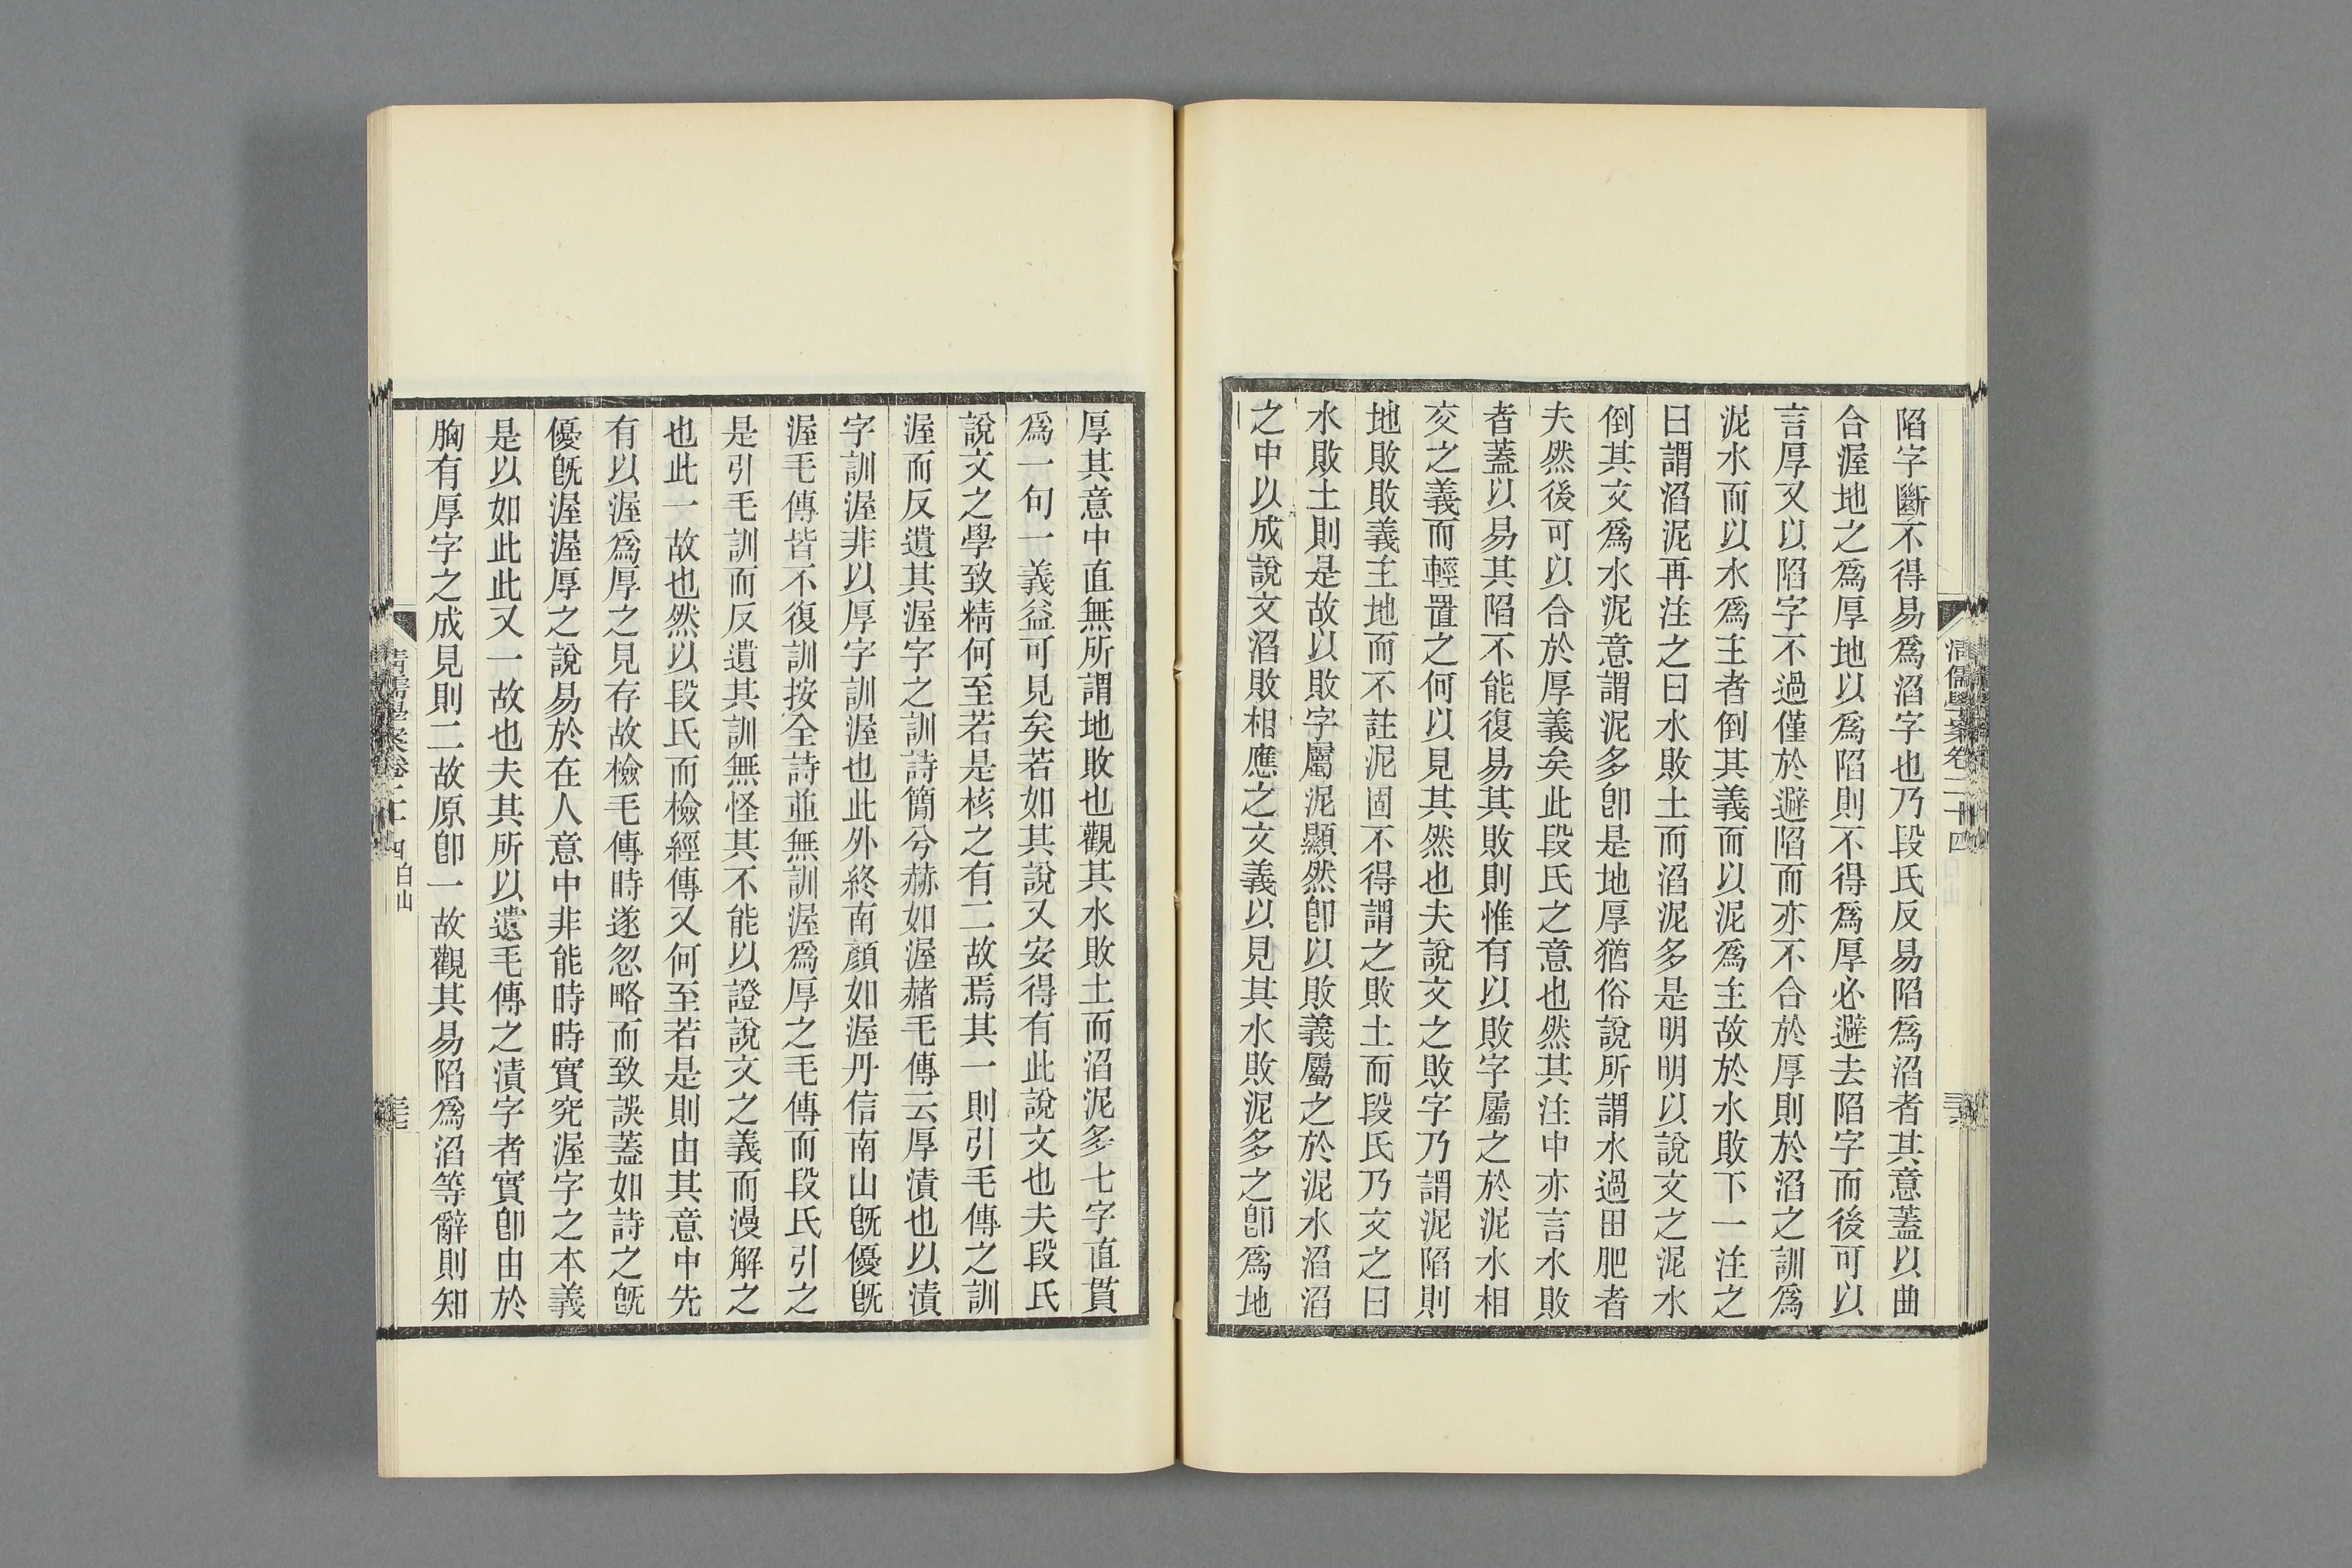 陷字斷不得易爲滔字也乃段氏反易陷爲滔者其意蓋以曲
合渥地之爲厚地以爲陷則不得爲厚必避去陷字而後可以
言厚又以陷字不過僅於避陷而亦不合於厚則於滔之訓爲
泥水而以水爲主者倒其義而以泥爲主故於水敗下一注之
曰謂滔泥再注之曰水敗土而滔泥多是明明以說文之泥水
倒其文爲水泥意謂泥多卽是地厚猶俗說所謂水過田肥者
夫然後可以合於厚義矣此段氏之意也然其注中亦言水敗
者蓋以易其陷不能復易其敗則惟有以敗字屬之於泥水相
交之義而輕置之何以見其然也夫說文之敗字乃謂泥陷則
地敗敗義主地而不註泥固不得謂之敗土而段氏乃文之曰
水敗土則是故以敗字屬泥顯然卽以敗義屬之於泥水滔滔
之中以成說文滔敗相應之文義以見其水敗泥多之卽爲地
清儒學案卷二十四
三六
厚其意中直無所謂地敗也觀其水敗土而滔泥多七字直貫
爲一句一義益可見矣若如其說又安得有此說文也夫段氏
說文之學致精何至若是核之有二故焉其一則引毛傳之訓
渥而反遺其渥字之訓詩簡兮赫如渥赭毛傳云厚漬也以漬
字訓渥非以厚字訓渥也此外終南顏如渥丹信南山旣優旣
渥毛傳皆不復訓按全詩並無訓渥爲厚之毛傳而段氏引之
是引毛訓而反遺其訓無怪其不能以證說文之義而漫解之
也此一故也然以段氏而檢經傳又何至若是則由其意中先
有以渥爲厚之見存故檢毛傳時遂忽略而致誤蓋如詩之旣
優旣渥渥厚之說易於在人意中非能時時實究渥字之本義
是以如此此又一故也夫其所以遺毛傳之漬字者實卽由於
胸有厚字之成見則二故原卽一故觀其易陷爲滔等辭則知
清儒學案卷二十四 白山
三七